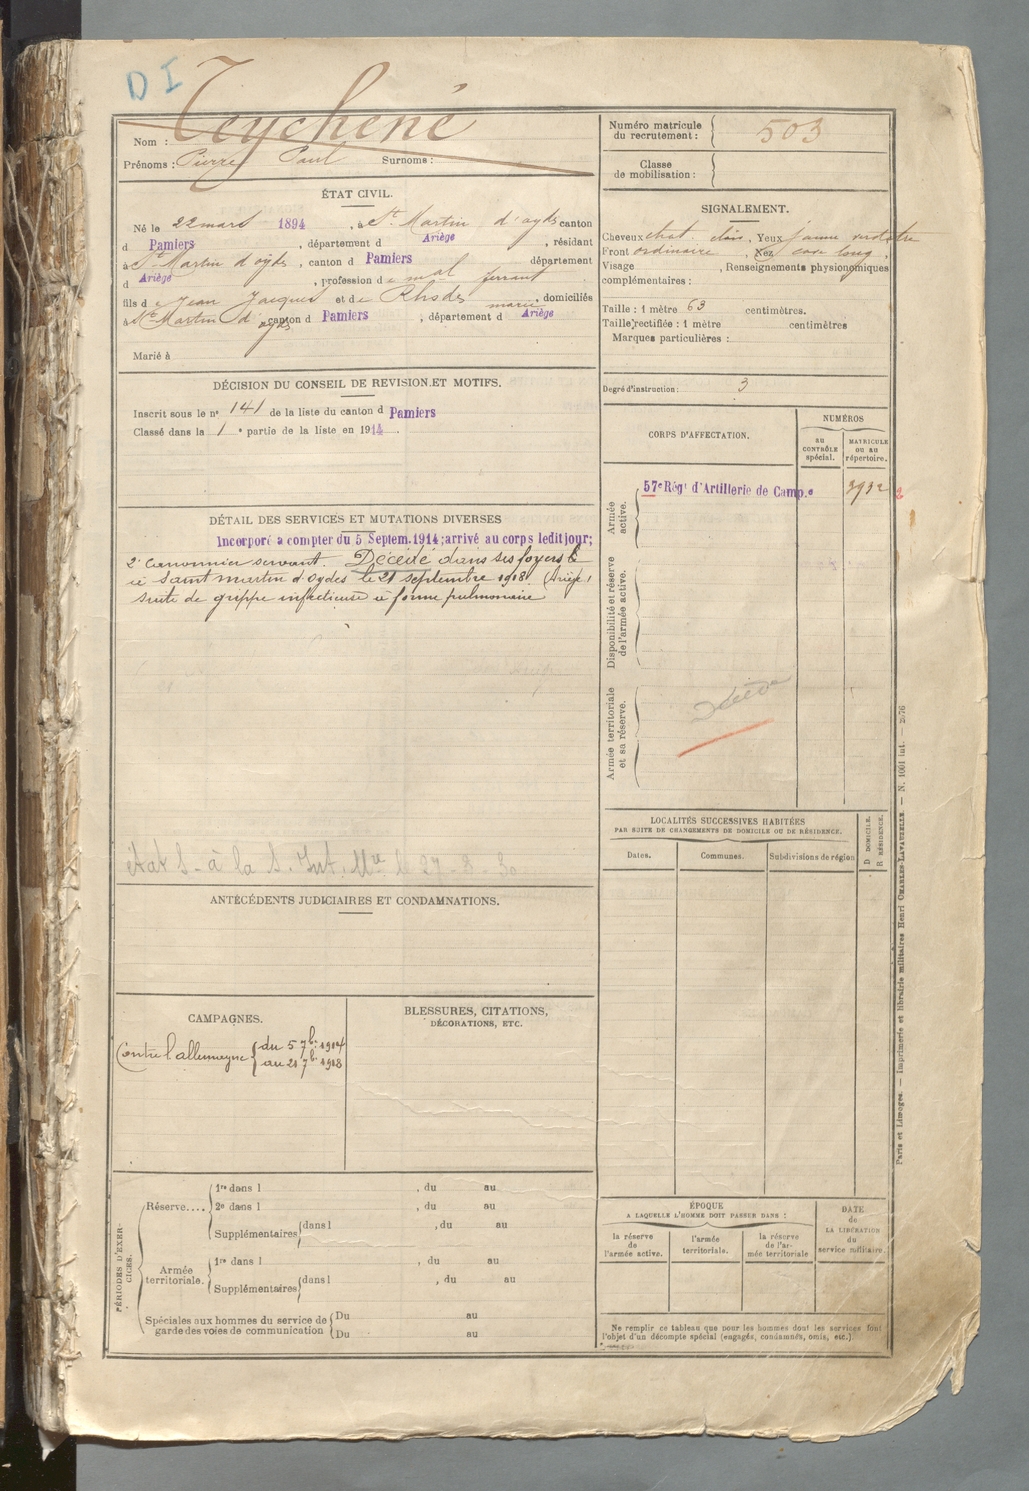 D I
Nom : Teychené
Prénoms : Pierre Paul Surnoms :
ÉTAT CIVIL.
Né le 22 mars 1894, à St. Martin d'oydes canton
d Pamiers, département d Ariège, résidant
à St Martin d'oydes, canton d Pamiers département
d Ariège, profession de mal ferrant
fils de Jean Jacques et de Rhodes marie, domiciliés
à St Martin d'oydes canton d Pamiers, département d Ariège
Marié à
DÉCISION DU CONSEIL DE REVISION ET MOTIFS.
Inscrit sous le n° 141 de la liste du canton d Pamiers
Classé dans la 1e partie de la liste en 1914.
DÉTAIL DES SERVICES ET MUTATIONS DIVERSES
Incorporé a compter du 5 Septem. 1914; arrivé au corps ledit jour;
2e canonnier servant. Décédé dans ses foyers
saint martin d'oydes le 21 septembre 1918 (Ariège)
suite de grippe infectieuse à forme pulmonaire
état S - à la S. Int. Mre le 27-8-30
ANTÉCÉDENTS JUDICIAIRES ET CONDAMNATIONS.
CAMPAGNES.
Contre l'allemagne { du 5 7bre 1914
au 21 7bre 1918
BLESSURES, CITATIONS,
DÉCORATIONS, ETC.
PÉRIODES D'EXER-
CICES.
Réserve.... 1re dans l , du au
2e dans l , du au
Supplémentaires dans l , du au
Armée
territoriale. 1re dans l , du au
Supplémentaires dans l , du au
Spéciales aux hommes du service de
garde des voies de communication
Du au
Du au
Numéro matricule
du recrutement : 503
Classe
de mobilisation :
SIGNALEMENT.
Cheveux chat. clair, Yeux jaune verdatre
Front ordinaire, Nez cave long,
Visage , Renseignements physionomiques
complémentaires :
Taille : 1 mètre 63 centimètres.
Taille rectifiée : 1 mètre centimètres
Marques particulières :
Degré d'instruction : 3
CORPS D'AFFECTATION.
NUMÉROS
AU
CONTRÔLE
spécial.
MATRICULE
OU AU
répertoire.
Armée
active.
57e Régt d'Artillerie de Camp.e 3932
2
Disponibilité et réserve
de l'armée active.
Armée territoriale
et sa réserve.
Décédé
LOCALITÉS SUCCESSIVES HABITÉES
PAR SUITE DE CHANGEMENTS DE DOMICILE OU DE RÉSIDENCE.
Dates.
Communes.
Subdivisions de région
D DOMICILE.
R RÉSIDENCE.
ÉPOQUE
A LAQUELLE L'HOMME DOIT PASSER DANS :
la réserve
de
l'armée active.
l'armée
territoriale.
la réserve
de l'ar-
mée territoriale
DATE
de
LA LIBÉRATION
du
service militaire.
Ne remplir ce tableau que pour les hommes dont les services font
l'objet d'un décompte spécial (engagés, condamnés, omis, etc.).
Paris et Limoges. — Imprimerie et librairie militaires Henri CHARLES-LAVAUZELLE. — N. 1001 int. — 2676